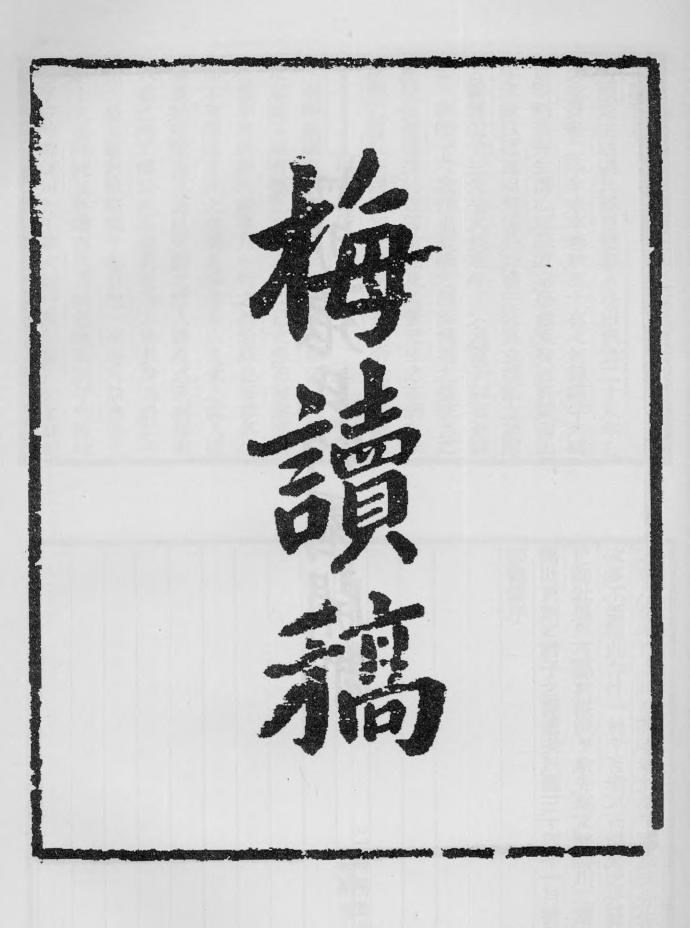 梅讀稿